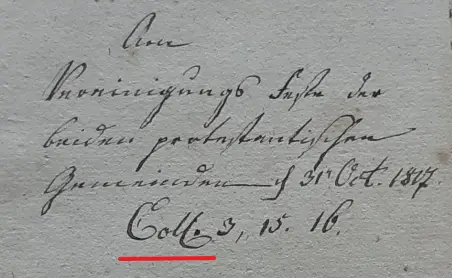 Am
Vereinigungs Feste der
beiden protestantischen
Gemeinden d 31 Oct. 1817.
Coll. 3, 15. 16.